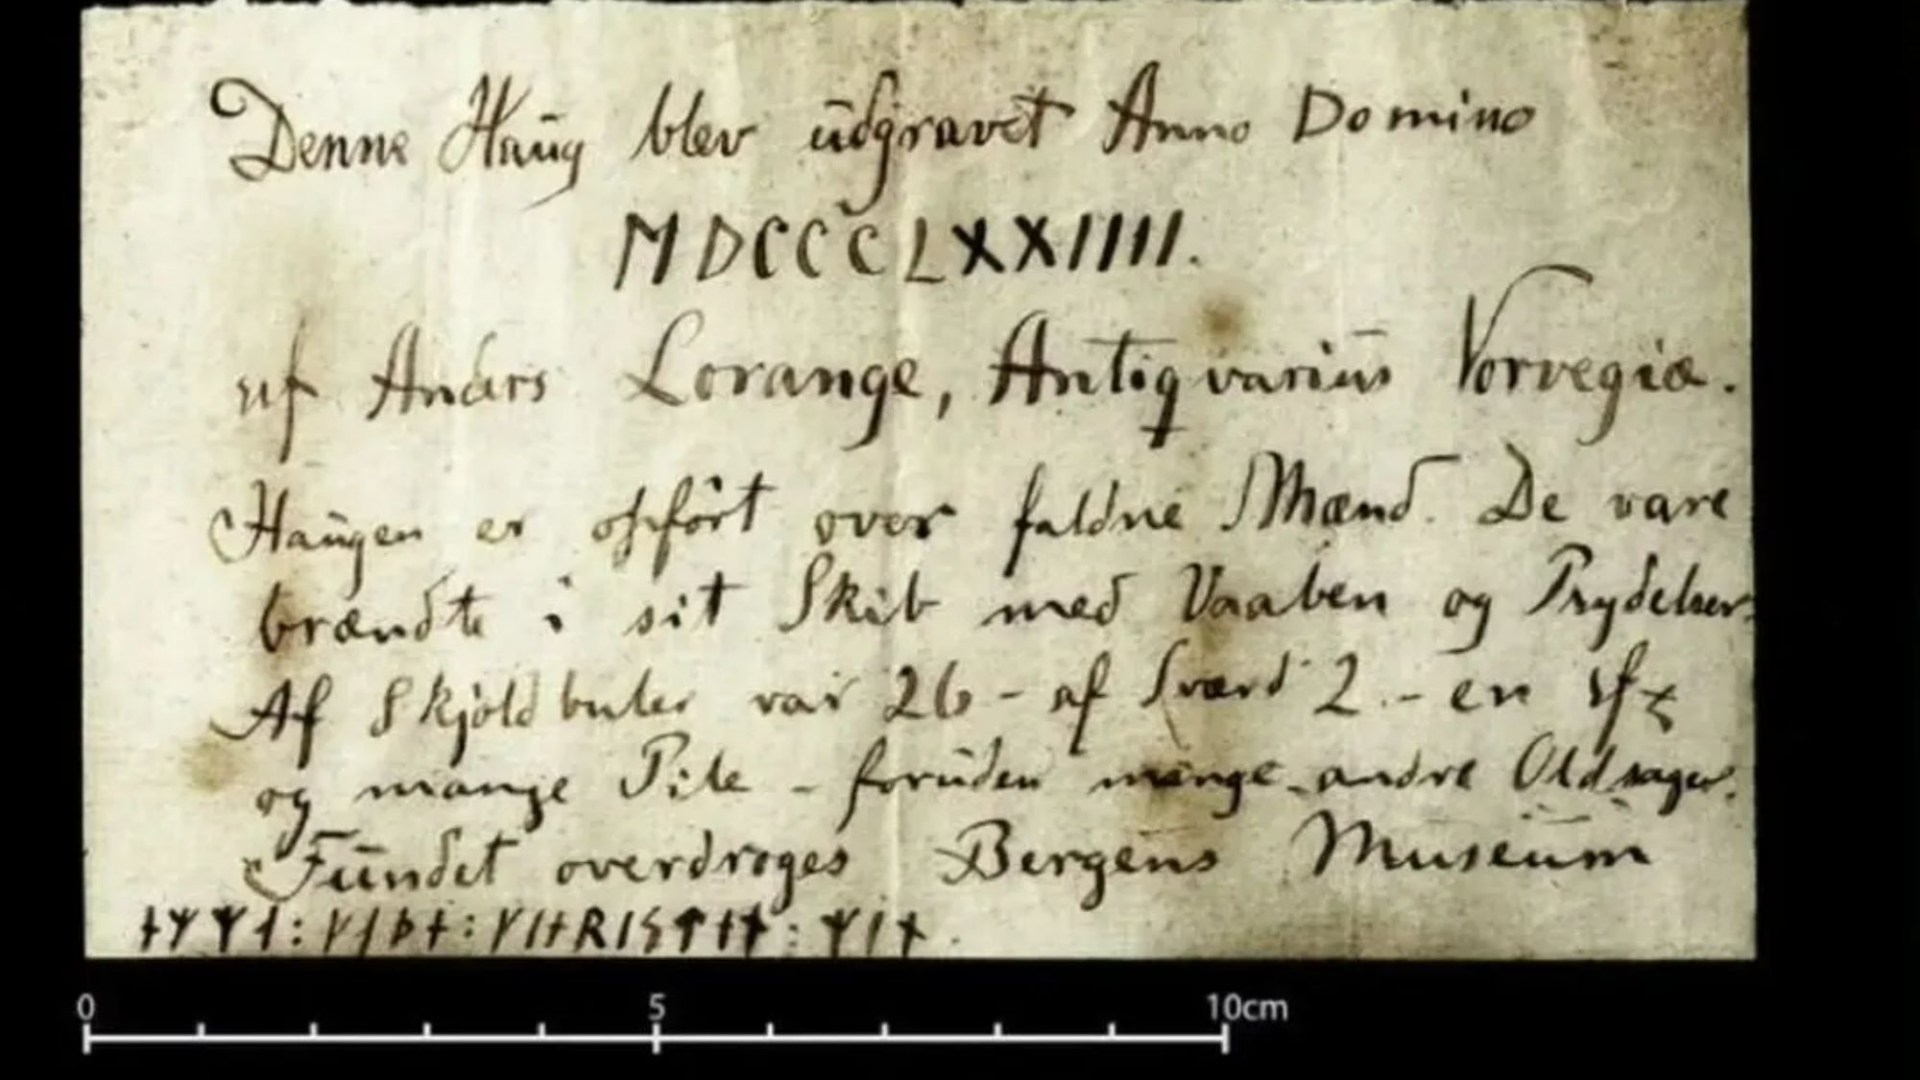 Denne Haüg blev üdgravet Anno Domino
MDCCCLXXIIII.
af Anders Lorange, Antiqvariüs Norvegiæ.
Haügen er opfört over faldne Mænd. De vare
brændte i sit Skib med Vaaben og Prydelser.
Af Skjoldbuler var 26 - af Sværd 2 - en
og mange Pile - forüden mange andre Oldsager.
Fündet overdroges Bergens Museüm
0 5 10cm